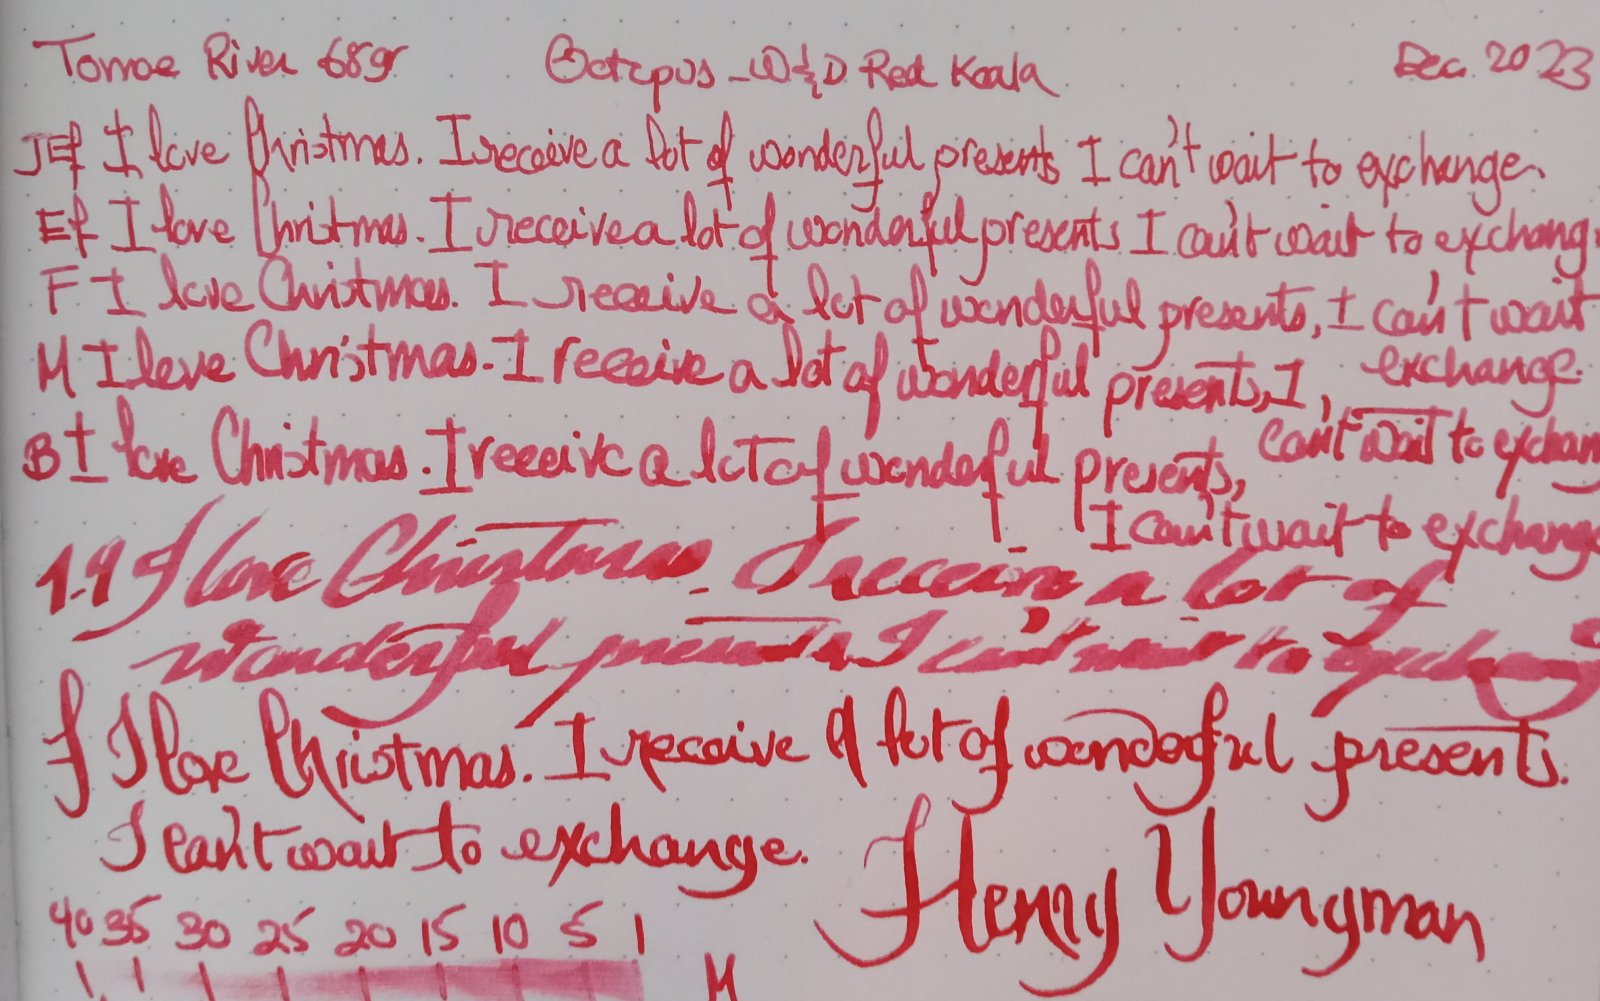 Tomoe River 68gr Octopus - W&D Red Koala Dec. 2023
JEf I love Christmas. I receive a lot of wonderful presents I can't wait to exchange.
Ef I love Christmas. I receive a lot of wonderful presents I can't wait to exchang
F I love Christmas. I receive a lot of wonderful presents, I can't wait
M I love Christmas. I receive a lot of wonderful presents, I, exchange.
B I love Christmas. I receive a lot of wonderful presents, can't wait to exchan
I can't wait to exchange
1.9 I love Christmas. I receive a lot of
wonderful presents, I can't wait to exchang
f I love Christmas. I receive a lot of wonderful presents.
I can't wait to exchange.
Henry Youngman
40 35 30 25 20 15 10 5 1
M